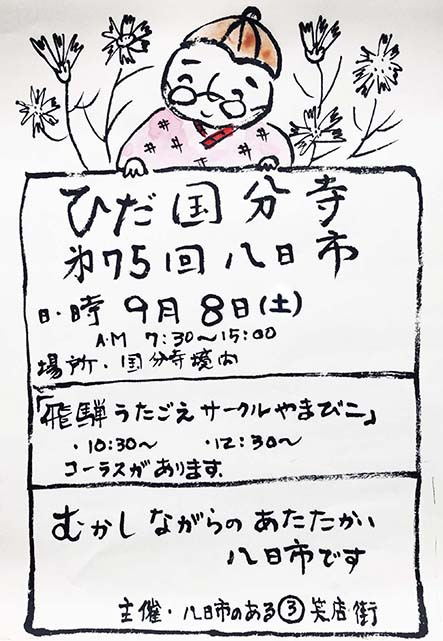 ひだ国分寺
第75回八日市
日・時 9月8日(土)
A.M 7:30~15:00
場所・国分寺境内
「飛騨うたごえサークルやまびこ」
・10:30~ ・12:30~
コーラスがあります。
むかしながらのあたたかい
八日市です
主催・八日市のある③笑店街